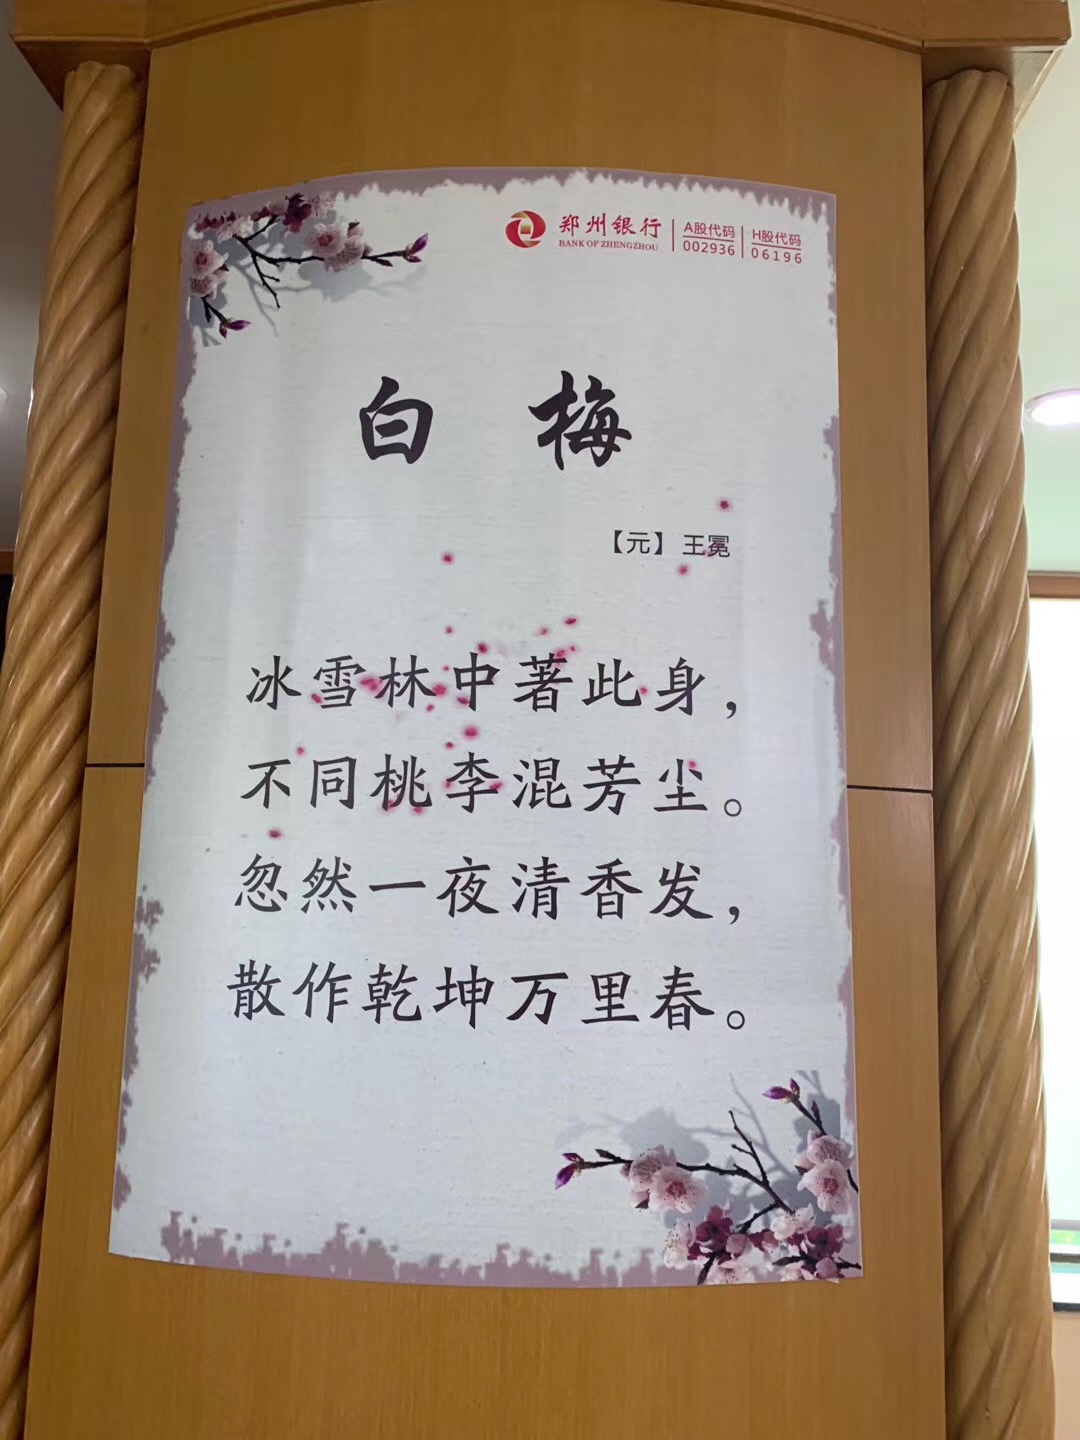 郑州银行
BANK OF ZHENGZHOU
A股代码
002936
H股代码
06196
白 梅
【元】王冕
冰雪林中著此身，
不同桃李混芳尘。
忽然一夜清香发，
散作乾坤万里春。